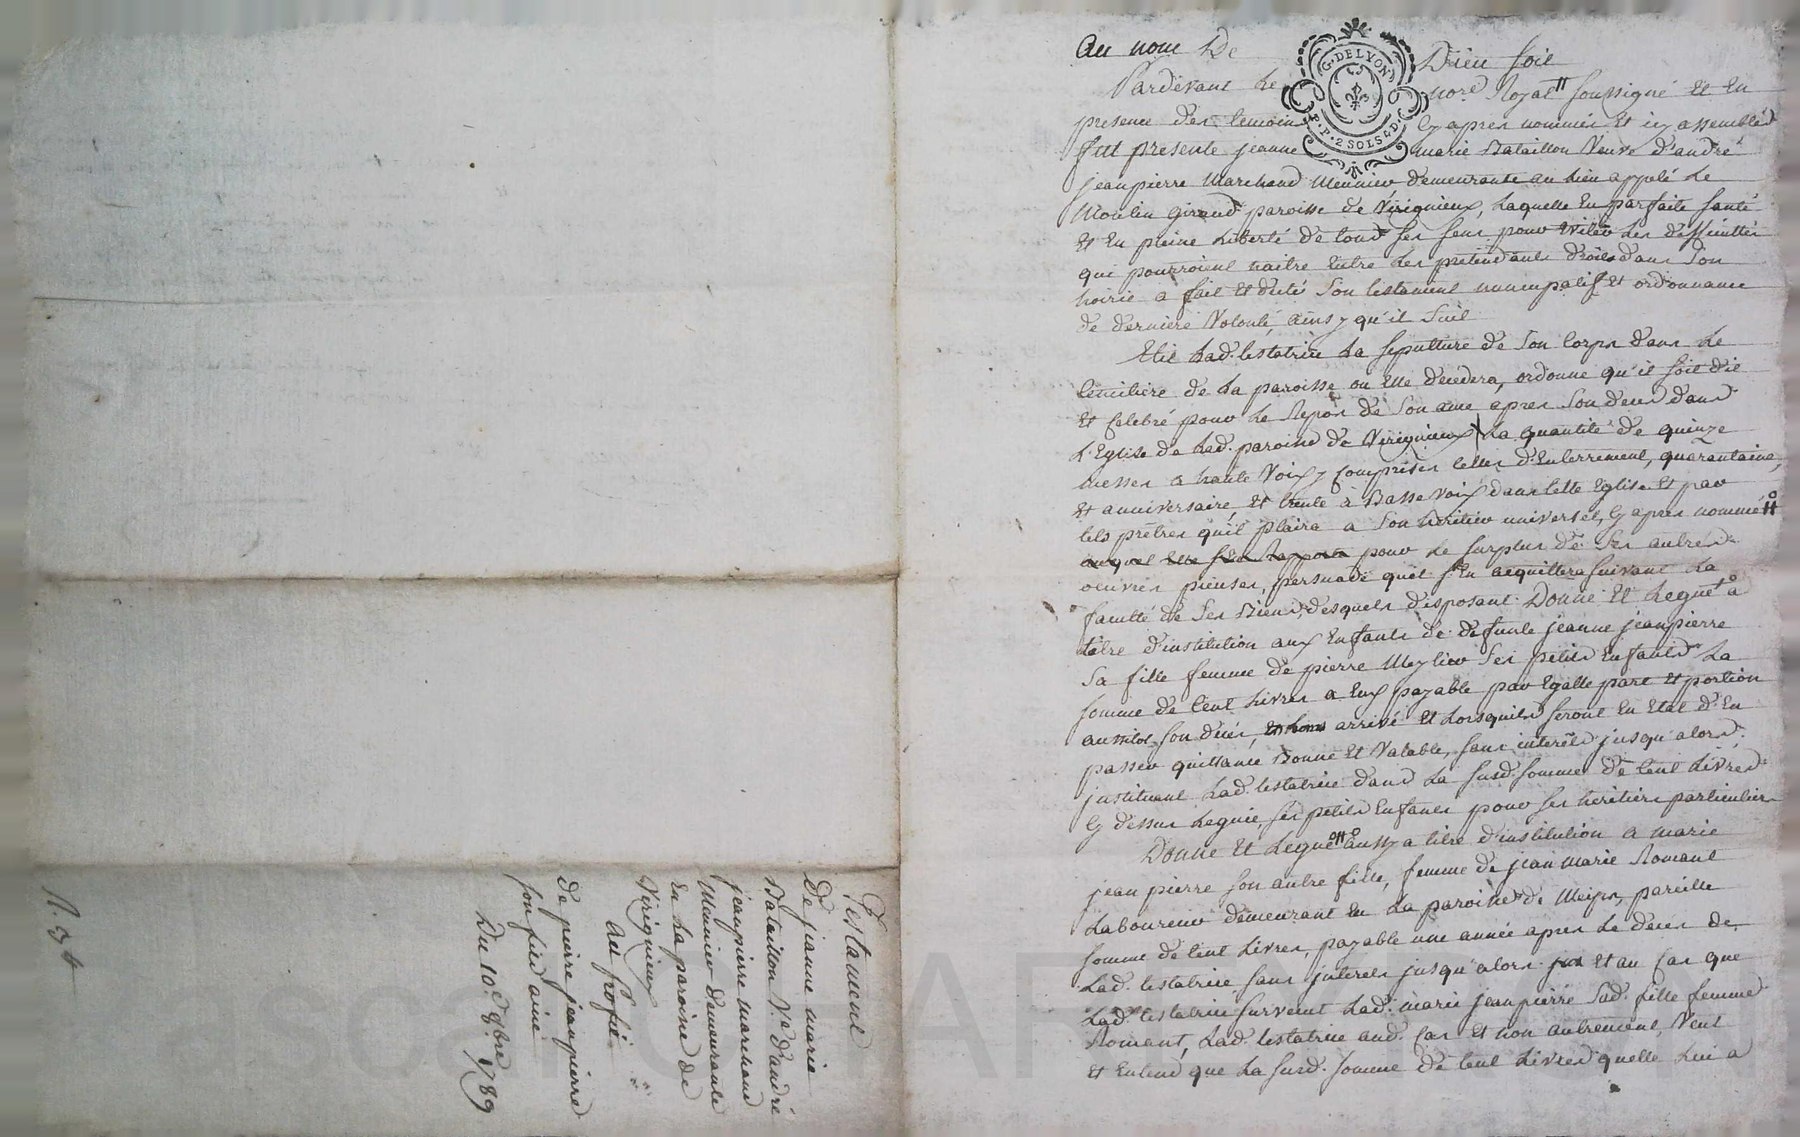 Testament
de jeanne marie
Bataillon v.e d'andré
jeanpierre marchand
Meunier demeurante
en la paroisse de
Virignieux
au profit
de pierre jeanpierre
son fils ainé
Du 10.e 8.bre 1789
N. 34
au nom De Dieu soit
G. DE LYON
P. P. 2 SOLS 4 D.
Pardevant le nore Royal soussigné et en
presence des temoins cy apres nommés et icy assemblés
fut presente jeanne marie Bataillon Veuve d'andré
jeanpierre Marchand Meunier demeurante au lieu appelé Le
Moulin giraud paroisse de Virignieux, Laquelle en parfaite santé
et en pleine Liberté de tous ses sens pour eviter les difficultés
qui pourroient naitre entre les pretendants droits dans Son
hoirie a fait et dicté Son testament nuncupatif et ordonnance
de derniere Volonté, ainsy qu'il suit
Elit Lad. testatrice La sepulture de Son Corps dans Le
Cimetiere de La paroisse ou elle decedera, ordonne qu'il soit dit
et Celebré pour Le Repos de Son ame apres Son deces dans
L'Eglise de Lad. paroisse de Virignieux La quantité de quinze
messes a haute Voix y comprises celles d'Enterrement, quarantaine,
et anniversaire, et trente a Basse voix dans cette Eglise et par
tels prêtres qu'il plaira a Son heritier universel, cy apres nommé
auquel elle s'en rapporte pour Le surplus de Ses autres
oeuvres pieuses, persuadé qu'il s'en acquittera suivant La
faculté de Ses Biens, desquels disposant Donne et Legue a
titre d'institution aux Enfants de defunte jeanne jeanpierre
Sa fille femme de pierre Meylieu Ses petits Enfants La
somme de Cent Livres a eux payable par Egalle part et portion
aussitot son décès, arrivé et Lorsquils seront en Etat d'En
passer quittance Bonne et Valable, sans interêts jusqu'alors,
jnstituant Lad. testatrice dans La susd. somme de Cent Livres
Cy dessus Leguée, ses petits Enfants pour ses heritiers particuliers
Donne et Legue aussy a titre d'institution a marie
jean pierre Son autre fille, femme de jean marie Romant
Laboureur demeurant en La paroisse de Meys, pareille
somme de Cent Livres, payable une année apres Le deces de
Lad. testatrice sans jnterets jusqu'alors et au Cas que
Lad. testatrice survecut Lad. marie jeanpierre Sad. fille femme
Romant, Lad. testatrice aud. Cas et non autrement, Veut
et Entend que La susd. somme de Cent Livres quelle Lui a